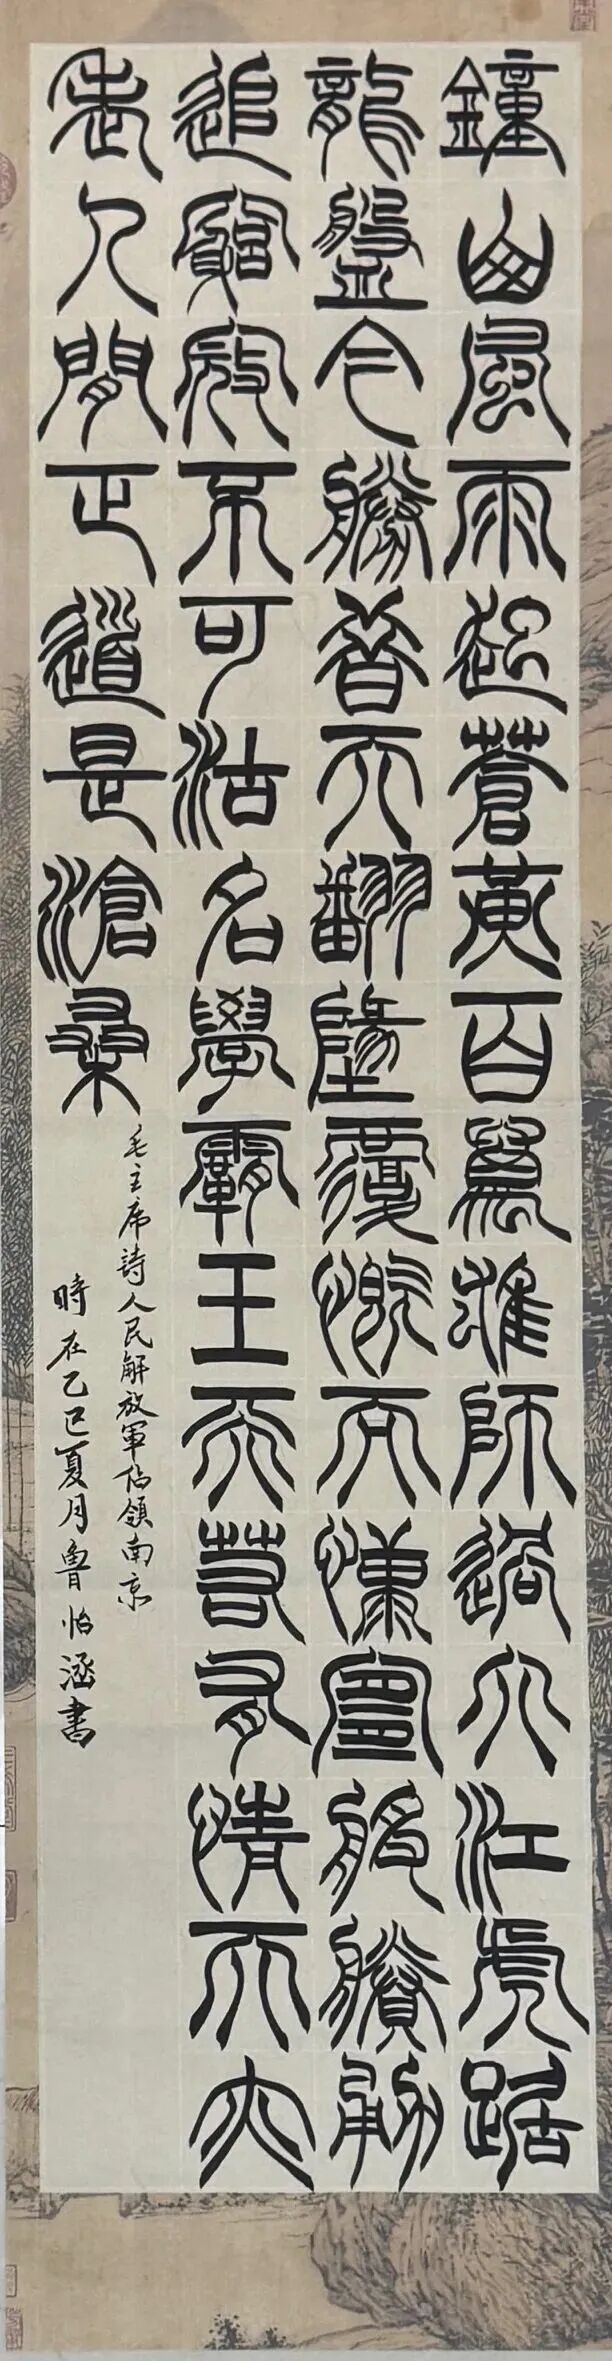 鐘山風雨起蒼黃百萬雄師過大江虎踞
龍盤今勝昔天翻墬覆慨而慷宜將賸勇
追窮寇不可沽名學霸王天若有情天亦
老人間正道是滄桑
毛主席詩人民解放軍佔領南京
時在乙巳夏月魯怡涵書